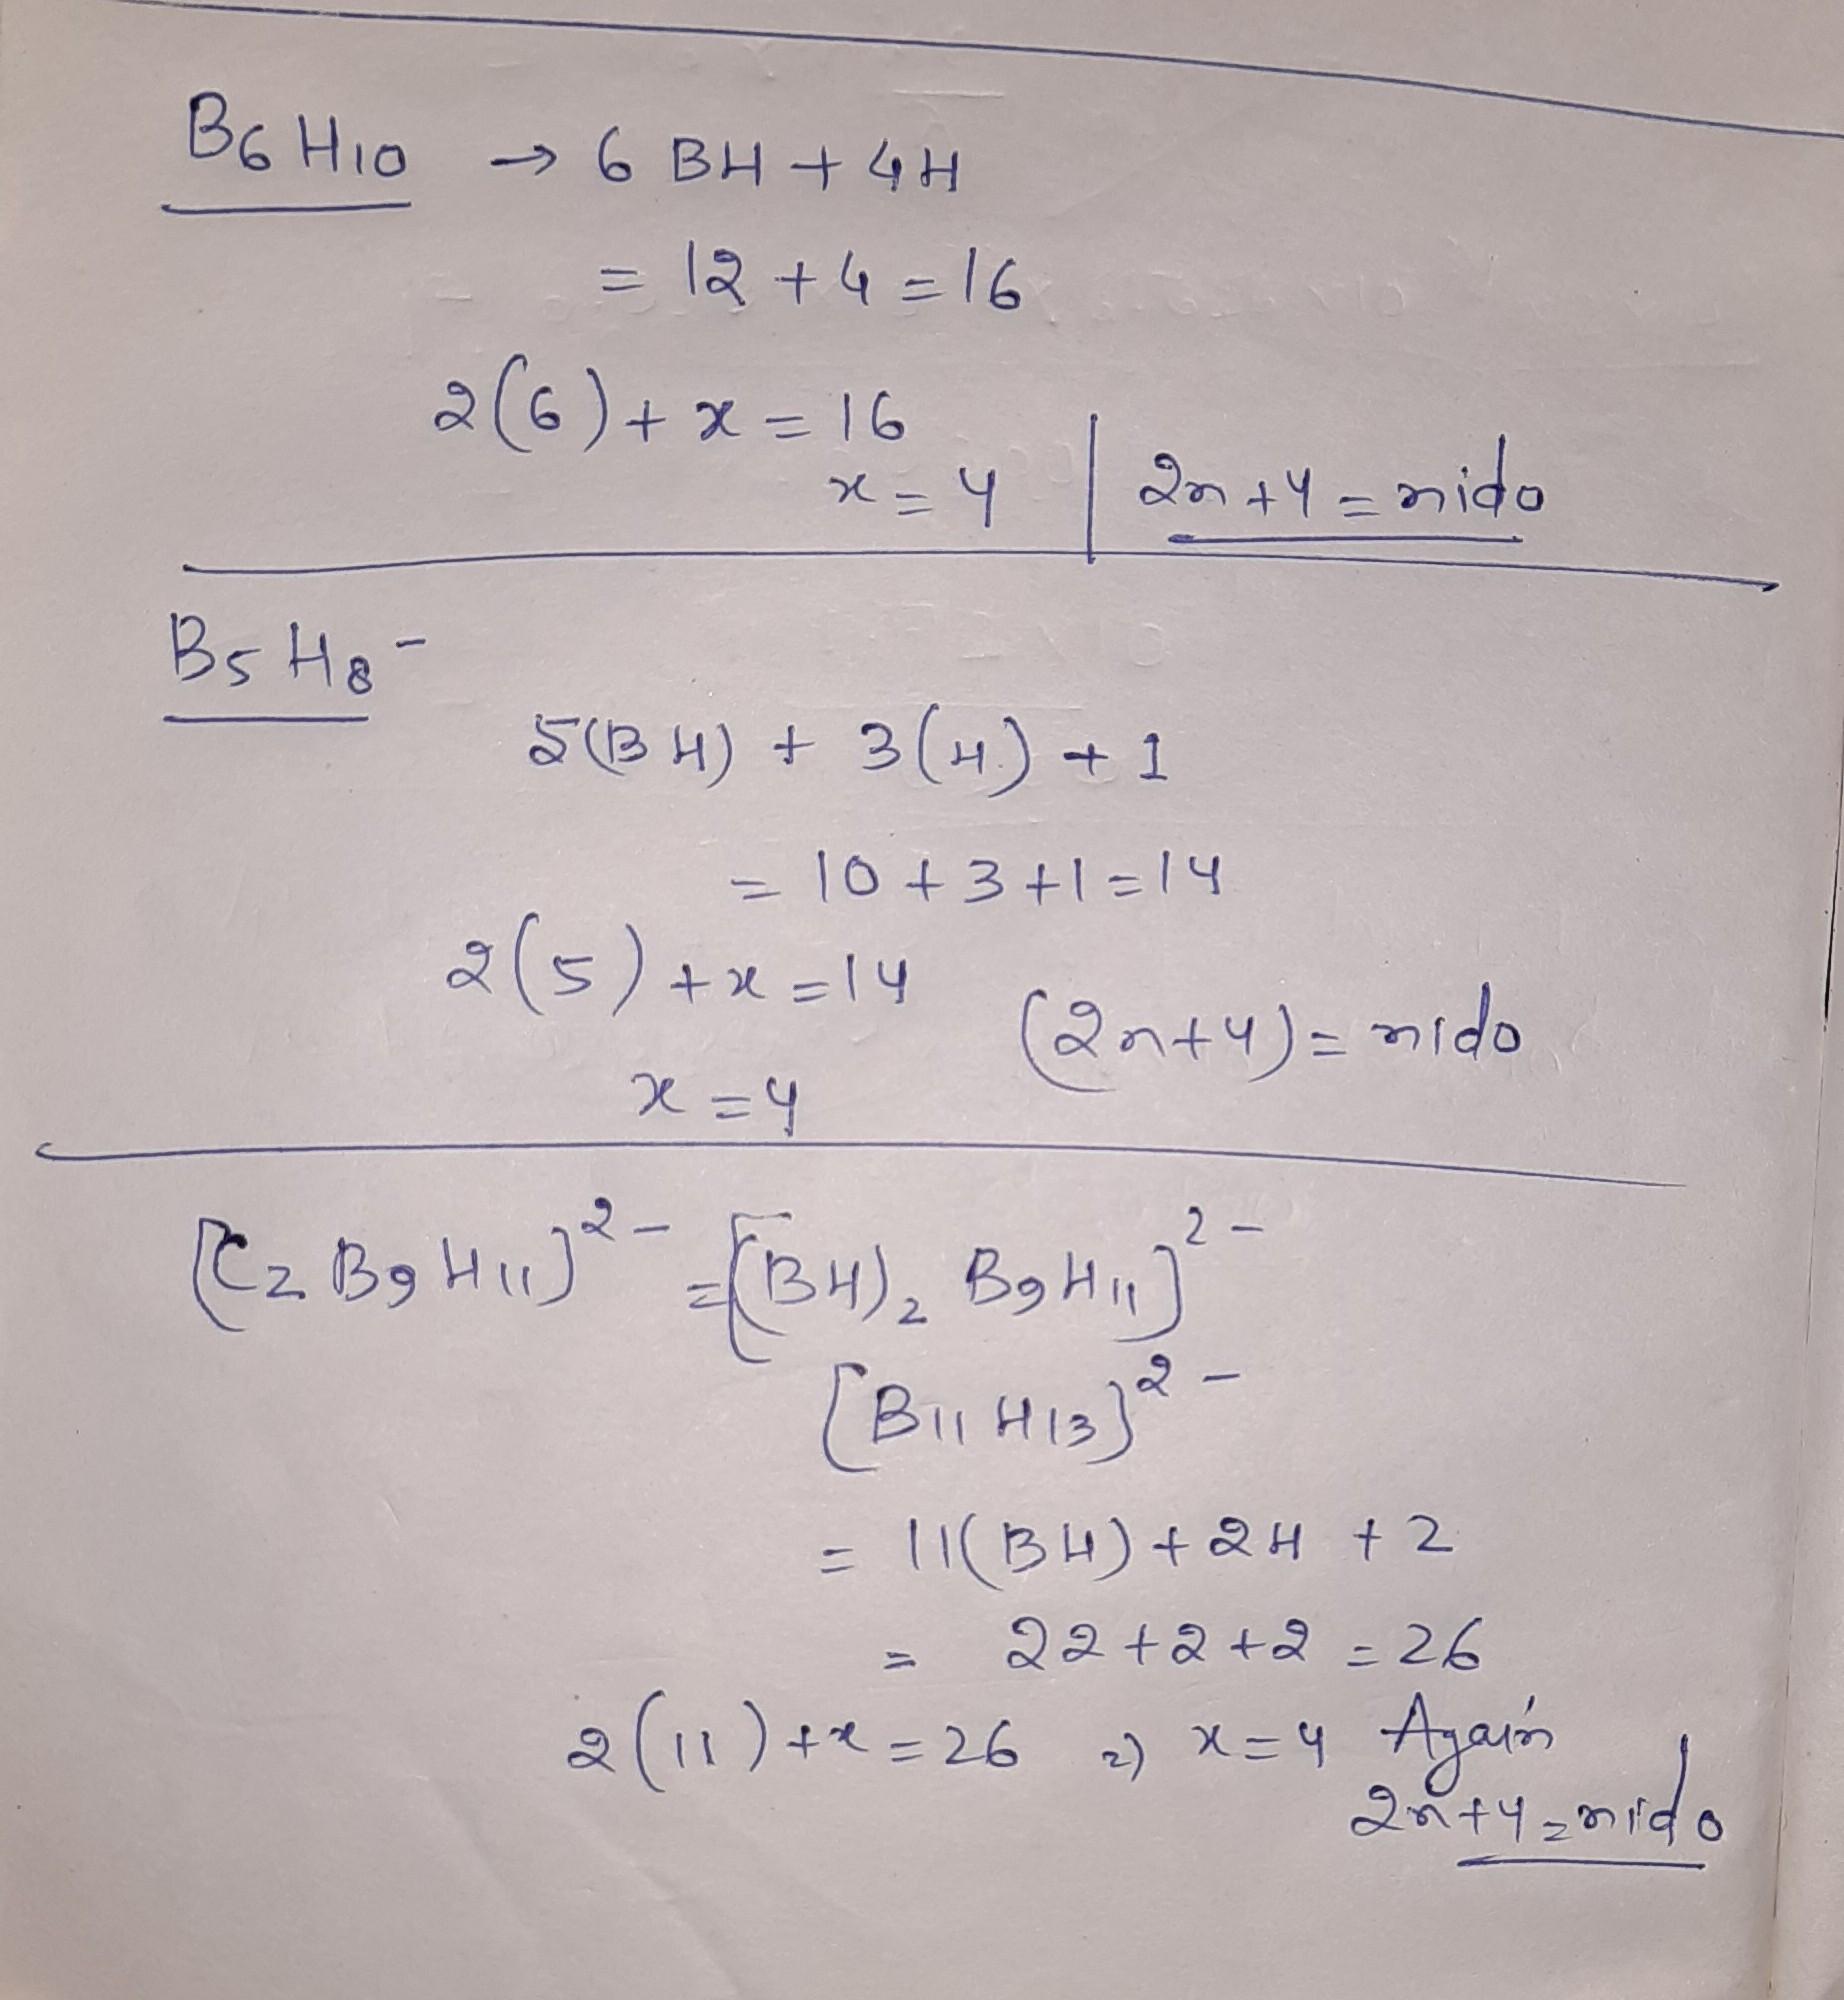 B6 H10 → 6 BH + 4H
= 12 + 4 = 16
2(6) + x = 16
x = 4 | 2n + 4 = nido
B5 H8 -
5(BH) + 3(H) + 1
= 10 + 3 + 1 = 14
2(5) + x = 14
(2n+4) = nido
x = 4
[C2 B9 H11]2- = [(BH)2 B9 H11]2-
[B11 H13]2-
= 11(BH) + 2H + 2
= 22 + 2 + 2 = 26
2(11) + x = 26 => x = 4 Again
2n+4 = nido